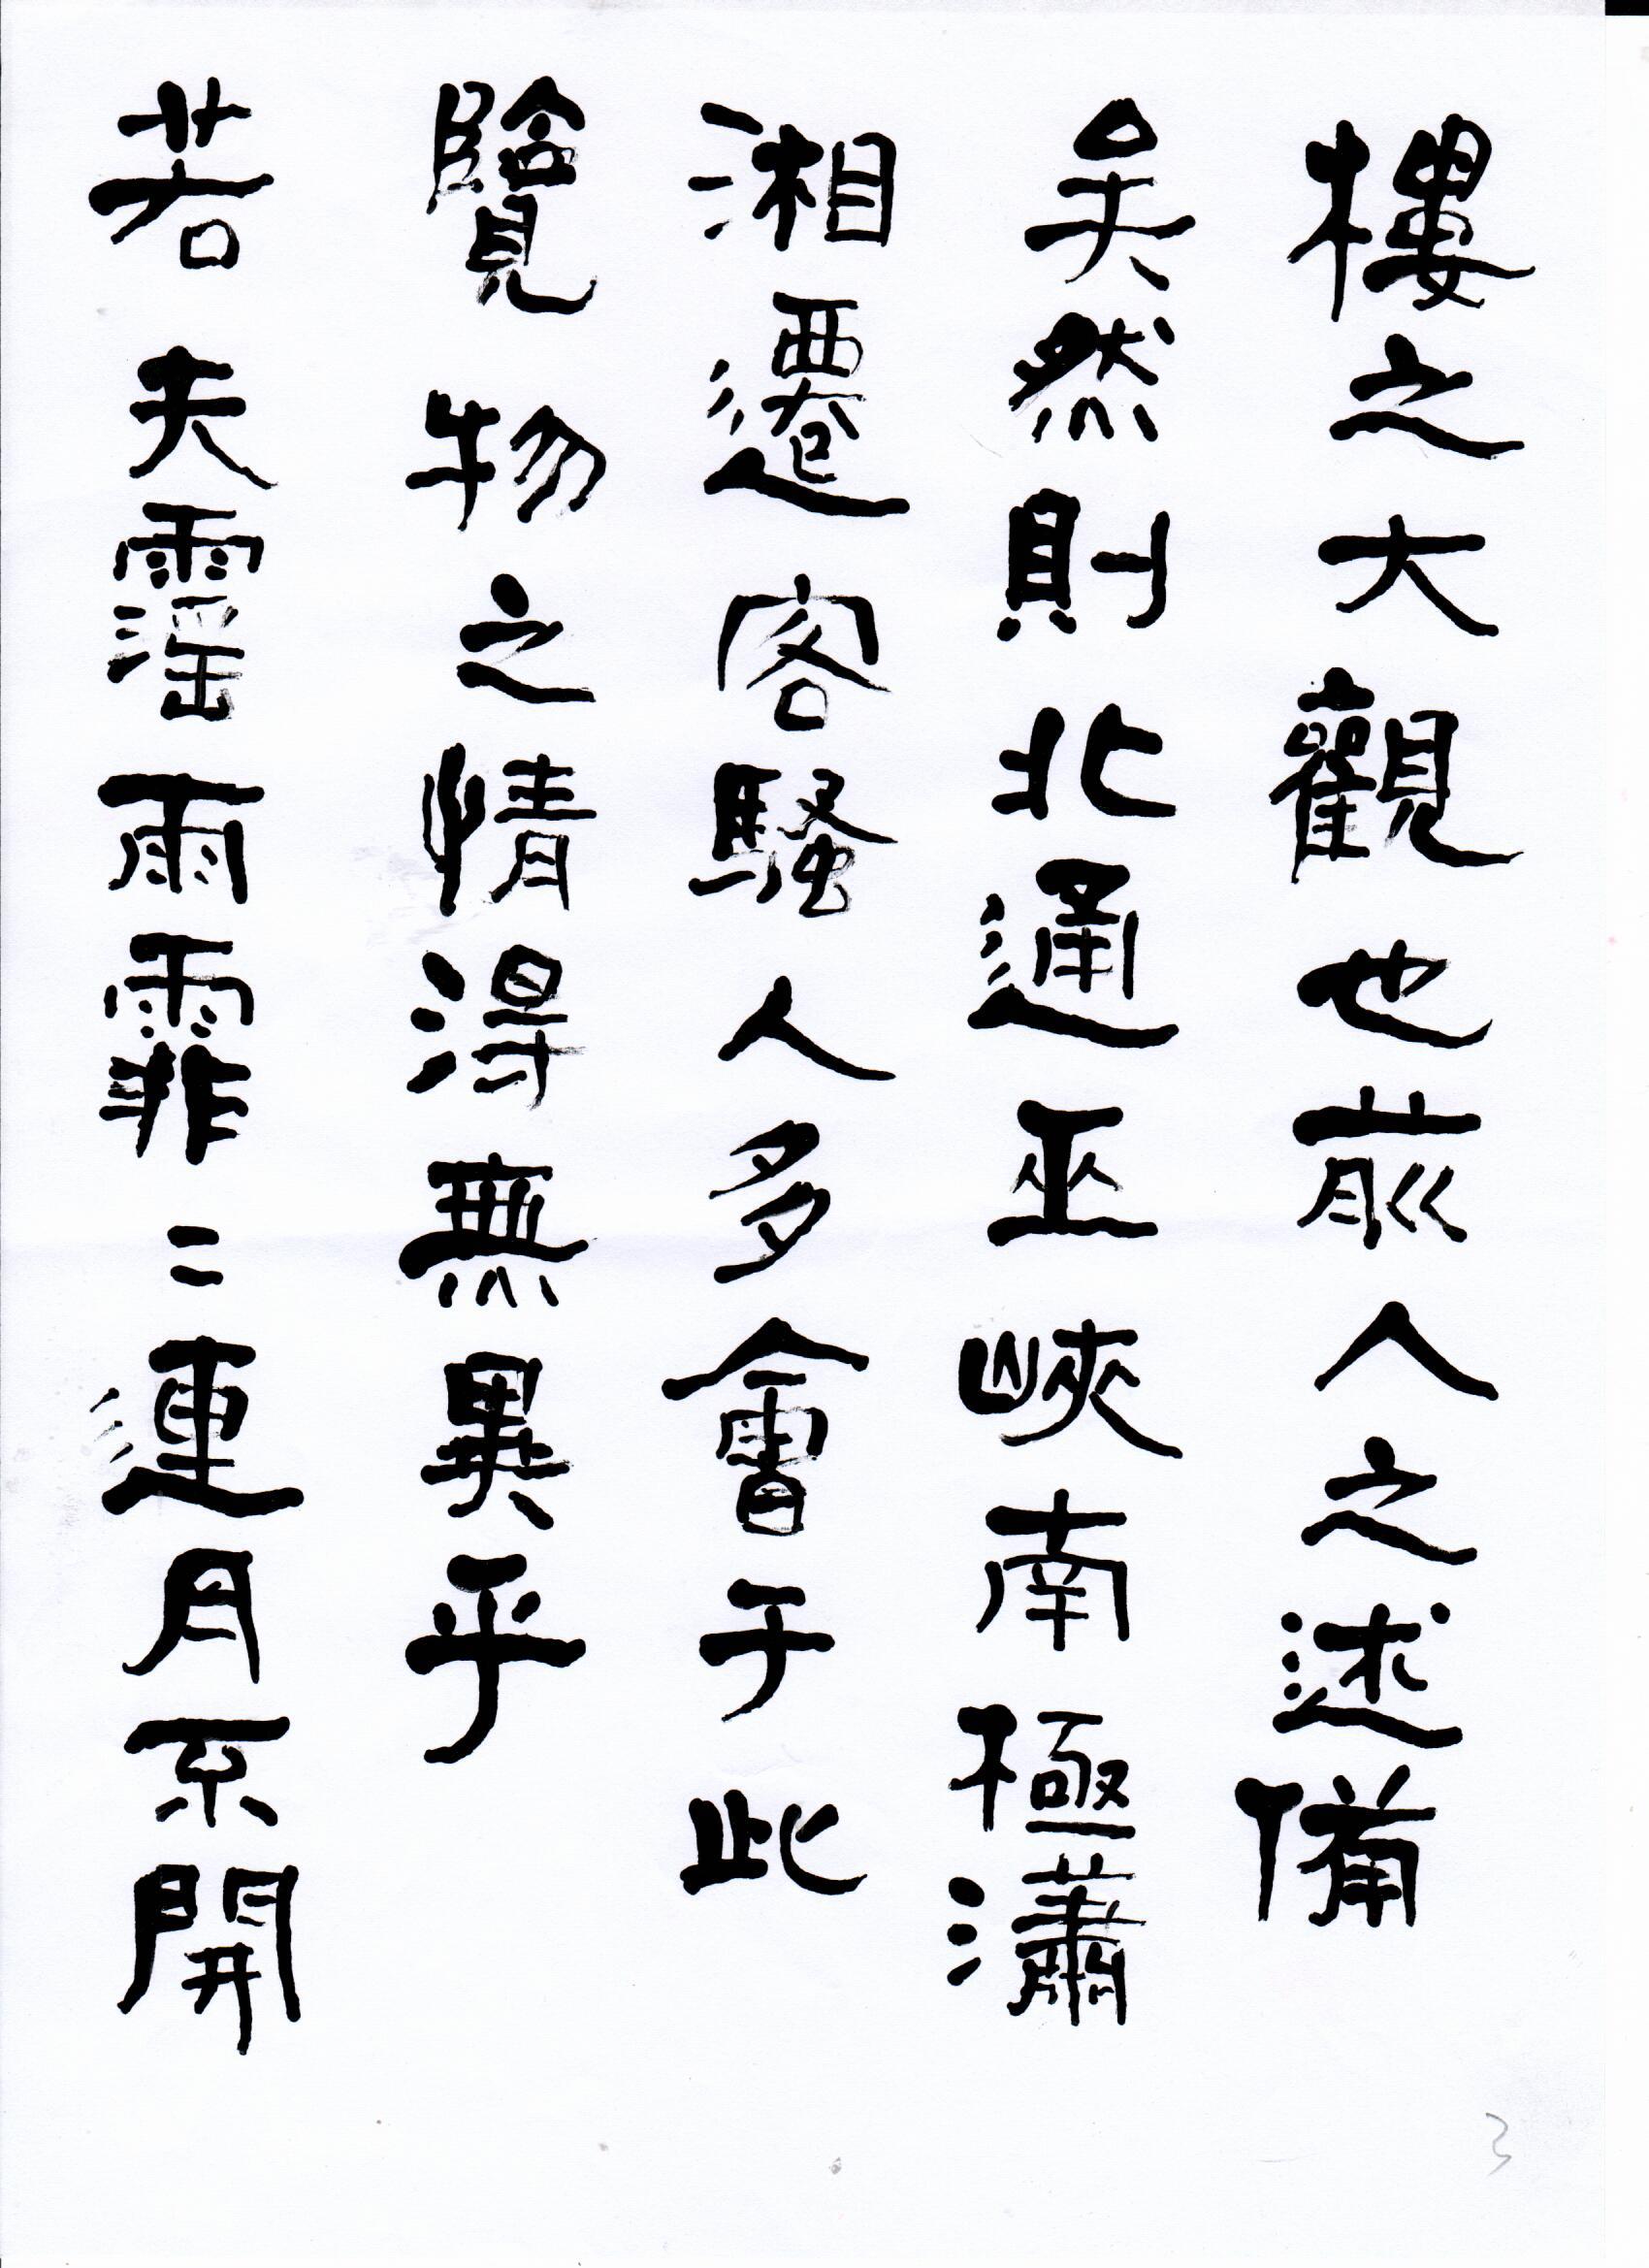 樓之大觀也前人之述備
矣然則北通巫峽南極瀟
湘遷客騷人多會于此
覽物之情得無異乎
若夫霪雨霏〻連月不開
3